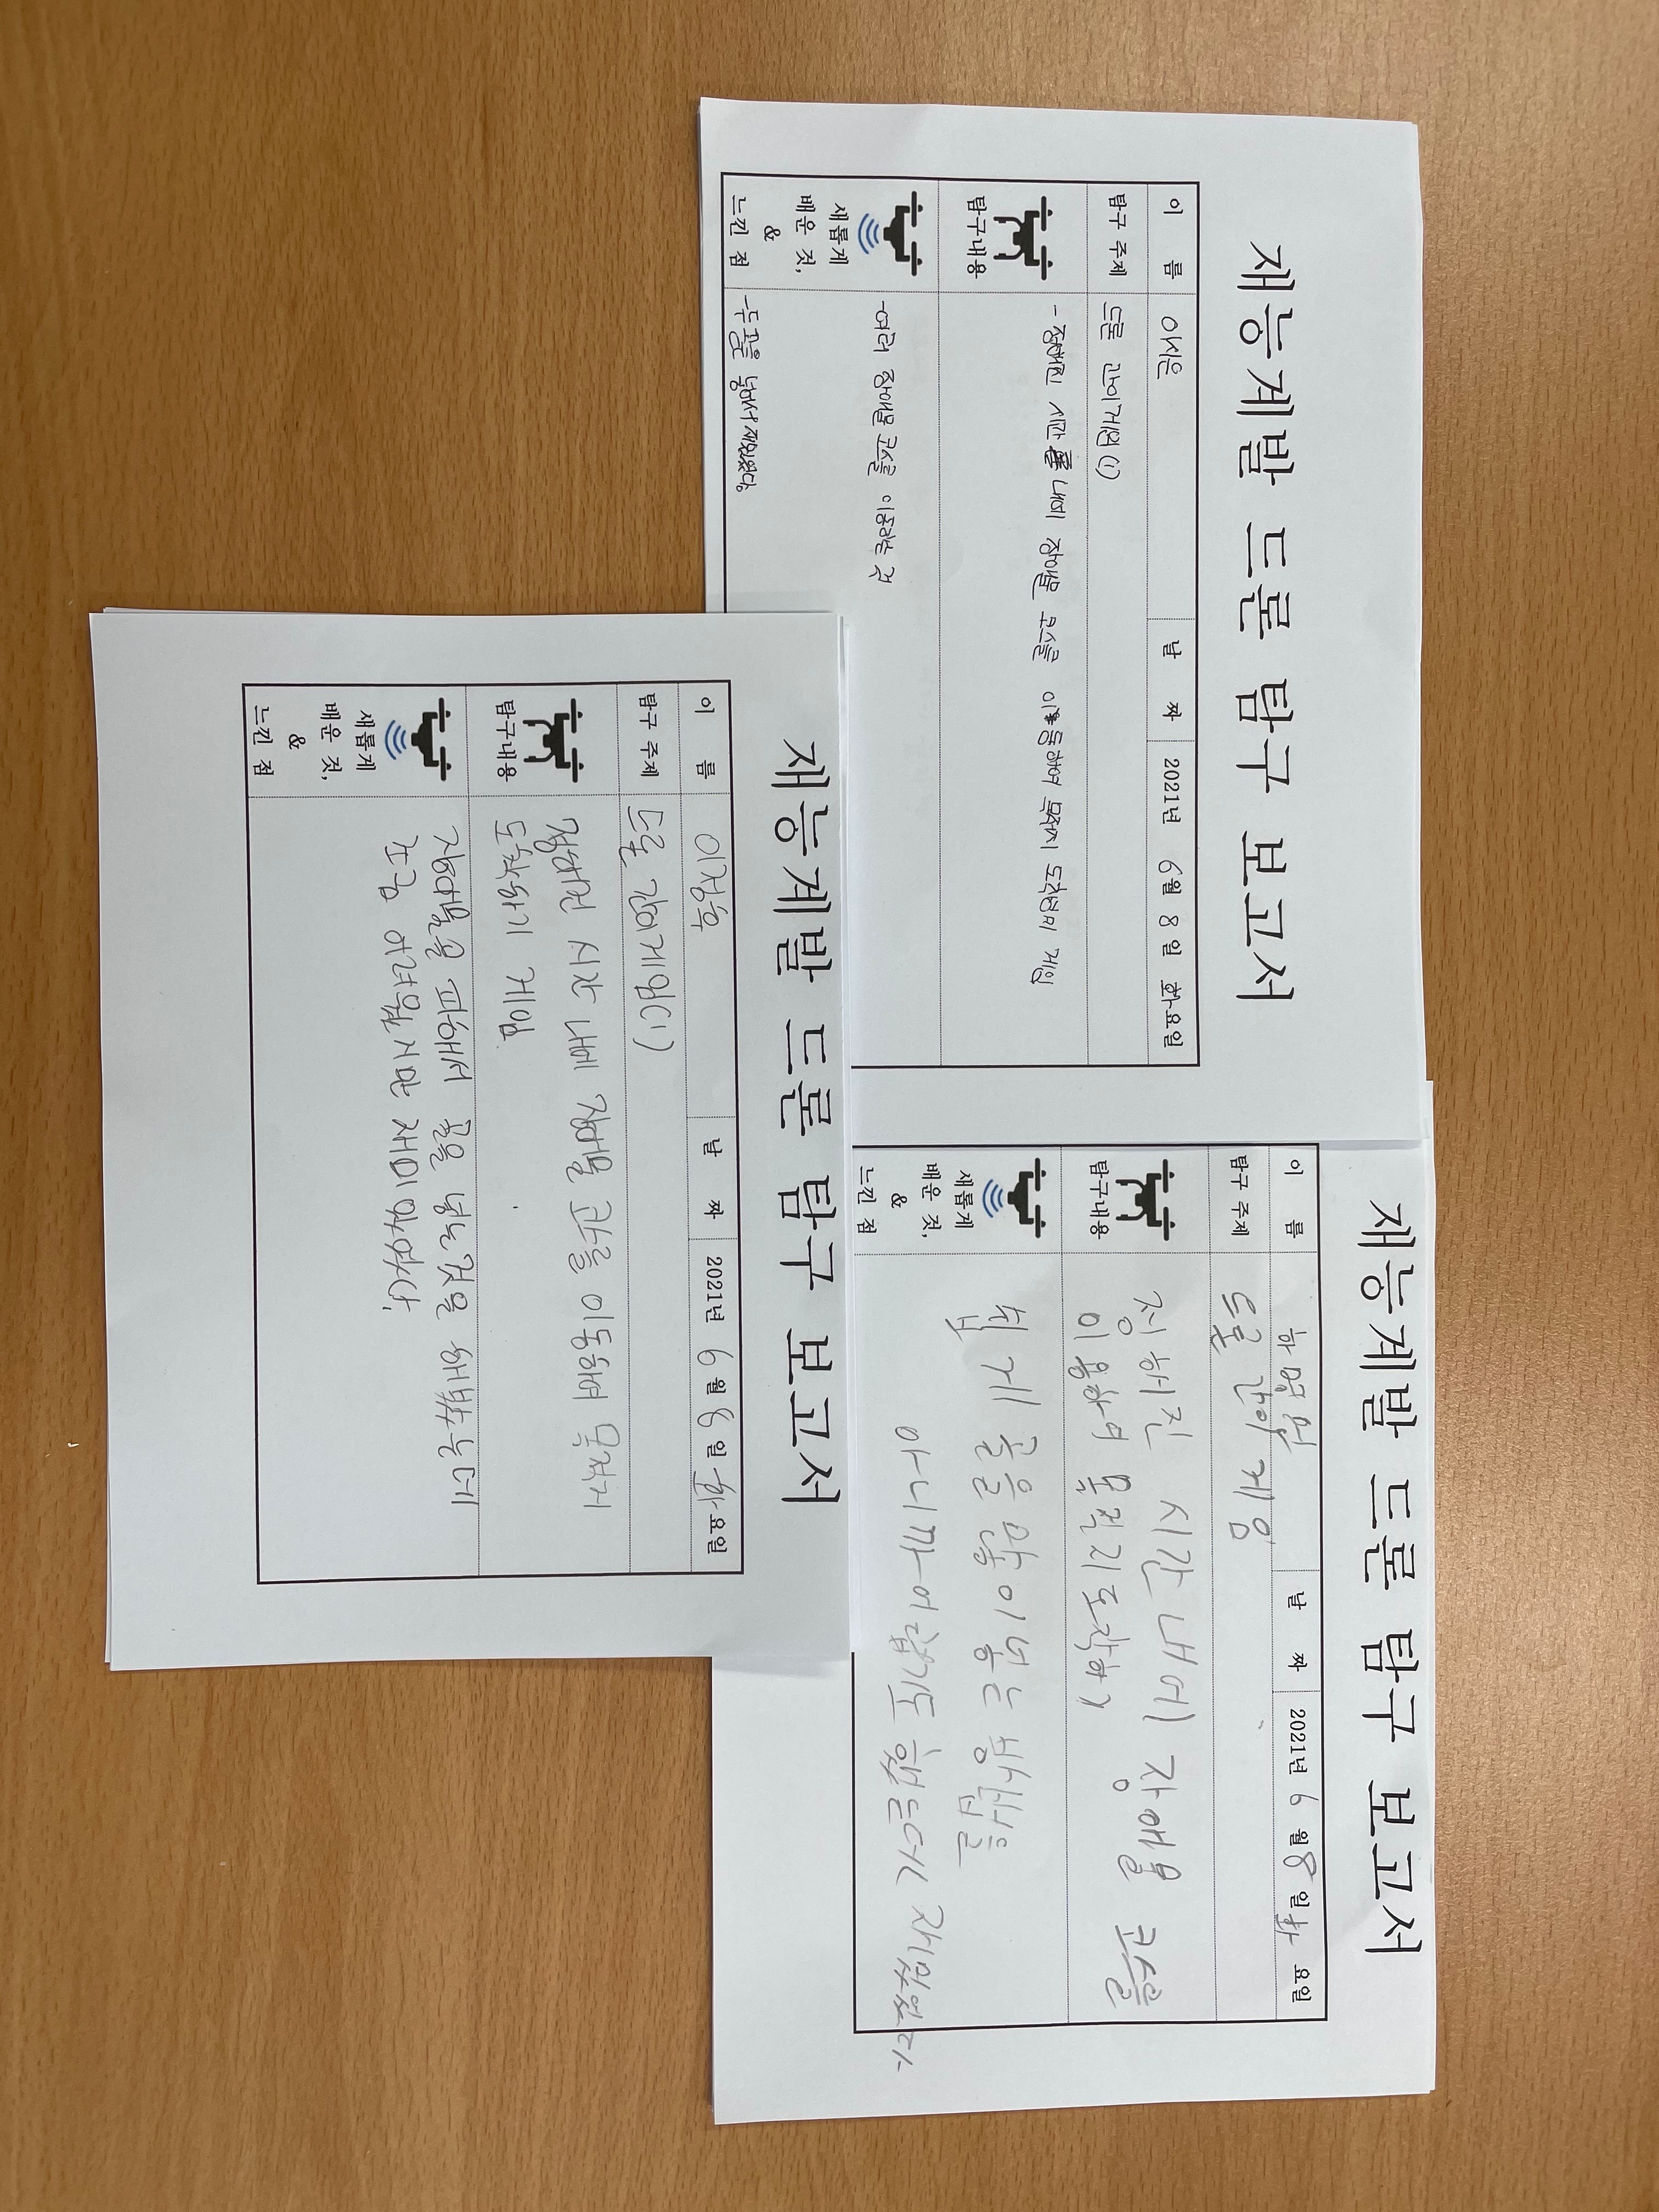 재능계발 드론 탐구 보고서
이 름 이시은 날 짜 2021년 6월 8일 화요일
탐구 주제 드론 간이게임(1)
탐구내용
- 정해진 시간 내에 장애물 코스를 이동하여 목적지 도착하기 게임
새롭게
배운 것,
&
느낀 점
-여러 장애물 코스를 이동하는 것
-두 골을 넣어서 재밌었다.
재능계발 드론 탐구 보고서
이 름 이정후 날 짜 2021년 6월 8일 화요일
탐구 주제 드론 간이게임(1)
탐구내용
정해진 시간 내에 장애물 코스를 이동하여 목적지
도착하기 게임
새롭게
배운 것,
&
느낀 점
장애물을 피해서 골을 넣는것을 해봤는데
조금 어려웠지만 재미있었다.
재능계발 드론 탐구 보고서
이 름 날 짜 2021년 6월 8일 화요일
탐구 주제 드론 간이 게임
탐구내용
정해진 시간내에 장애물 코스를
이용하여 목적지도착하기
새롭게
배운 것,
&
느낀 점
쉽게 골을 많이 넣는 방법을
아니까 어렵기도 했는데 재밌었다